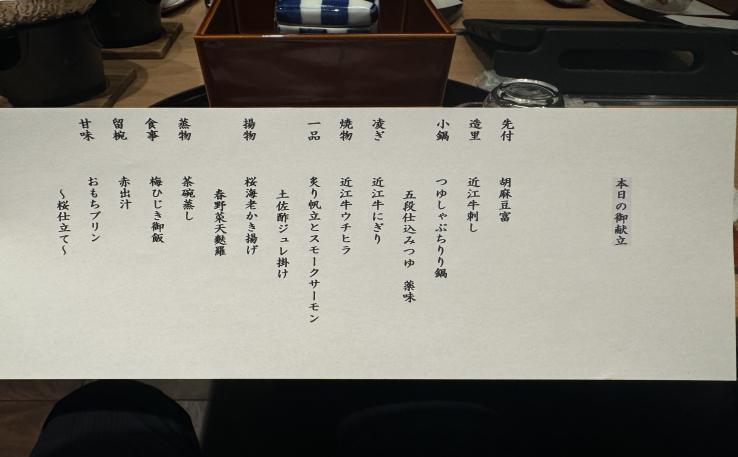 本日の御献立
先付 胡麻豆富
造里 近江牛刺し
小鍋 つゆしゃぶちりり鍋
五段仕込みつゆ 薬味
凌ぎ 近江牛にぎり
焼物 近江牛ウチヒラ
一品 炙り帆立とスモークサーモン
土佐酢ジュレ掛け
揚物 桜海老かき揚げ
春野菜天麩羅
蒸物 茶碗蒸し
食事 梅ひじき御飯
留椀 赤出汁
甘味 おもちプリン
～桜仕立て～